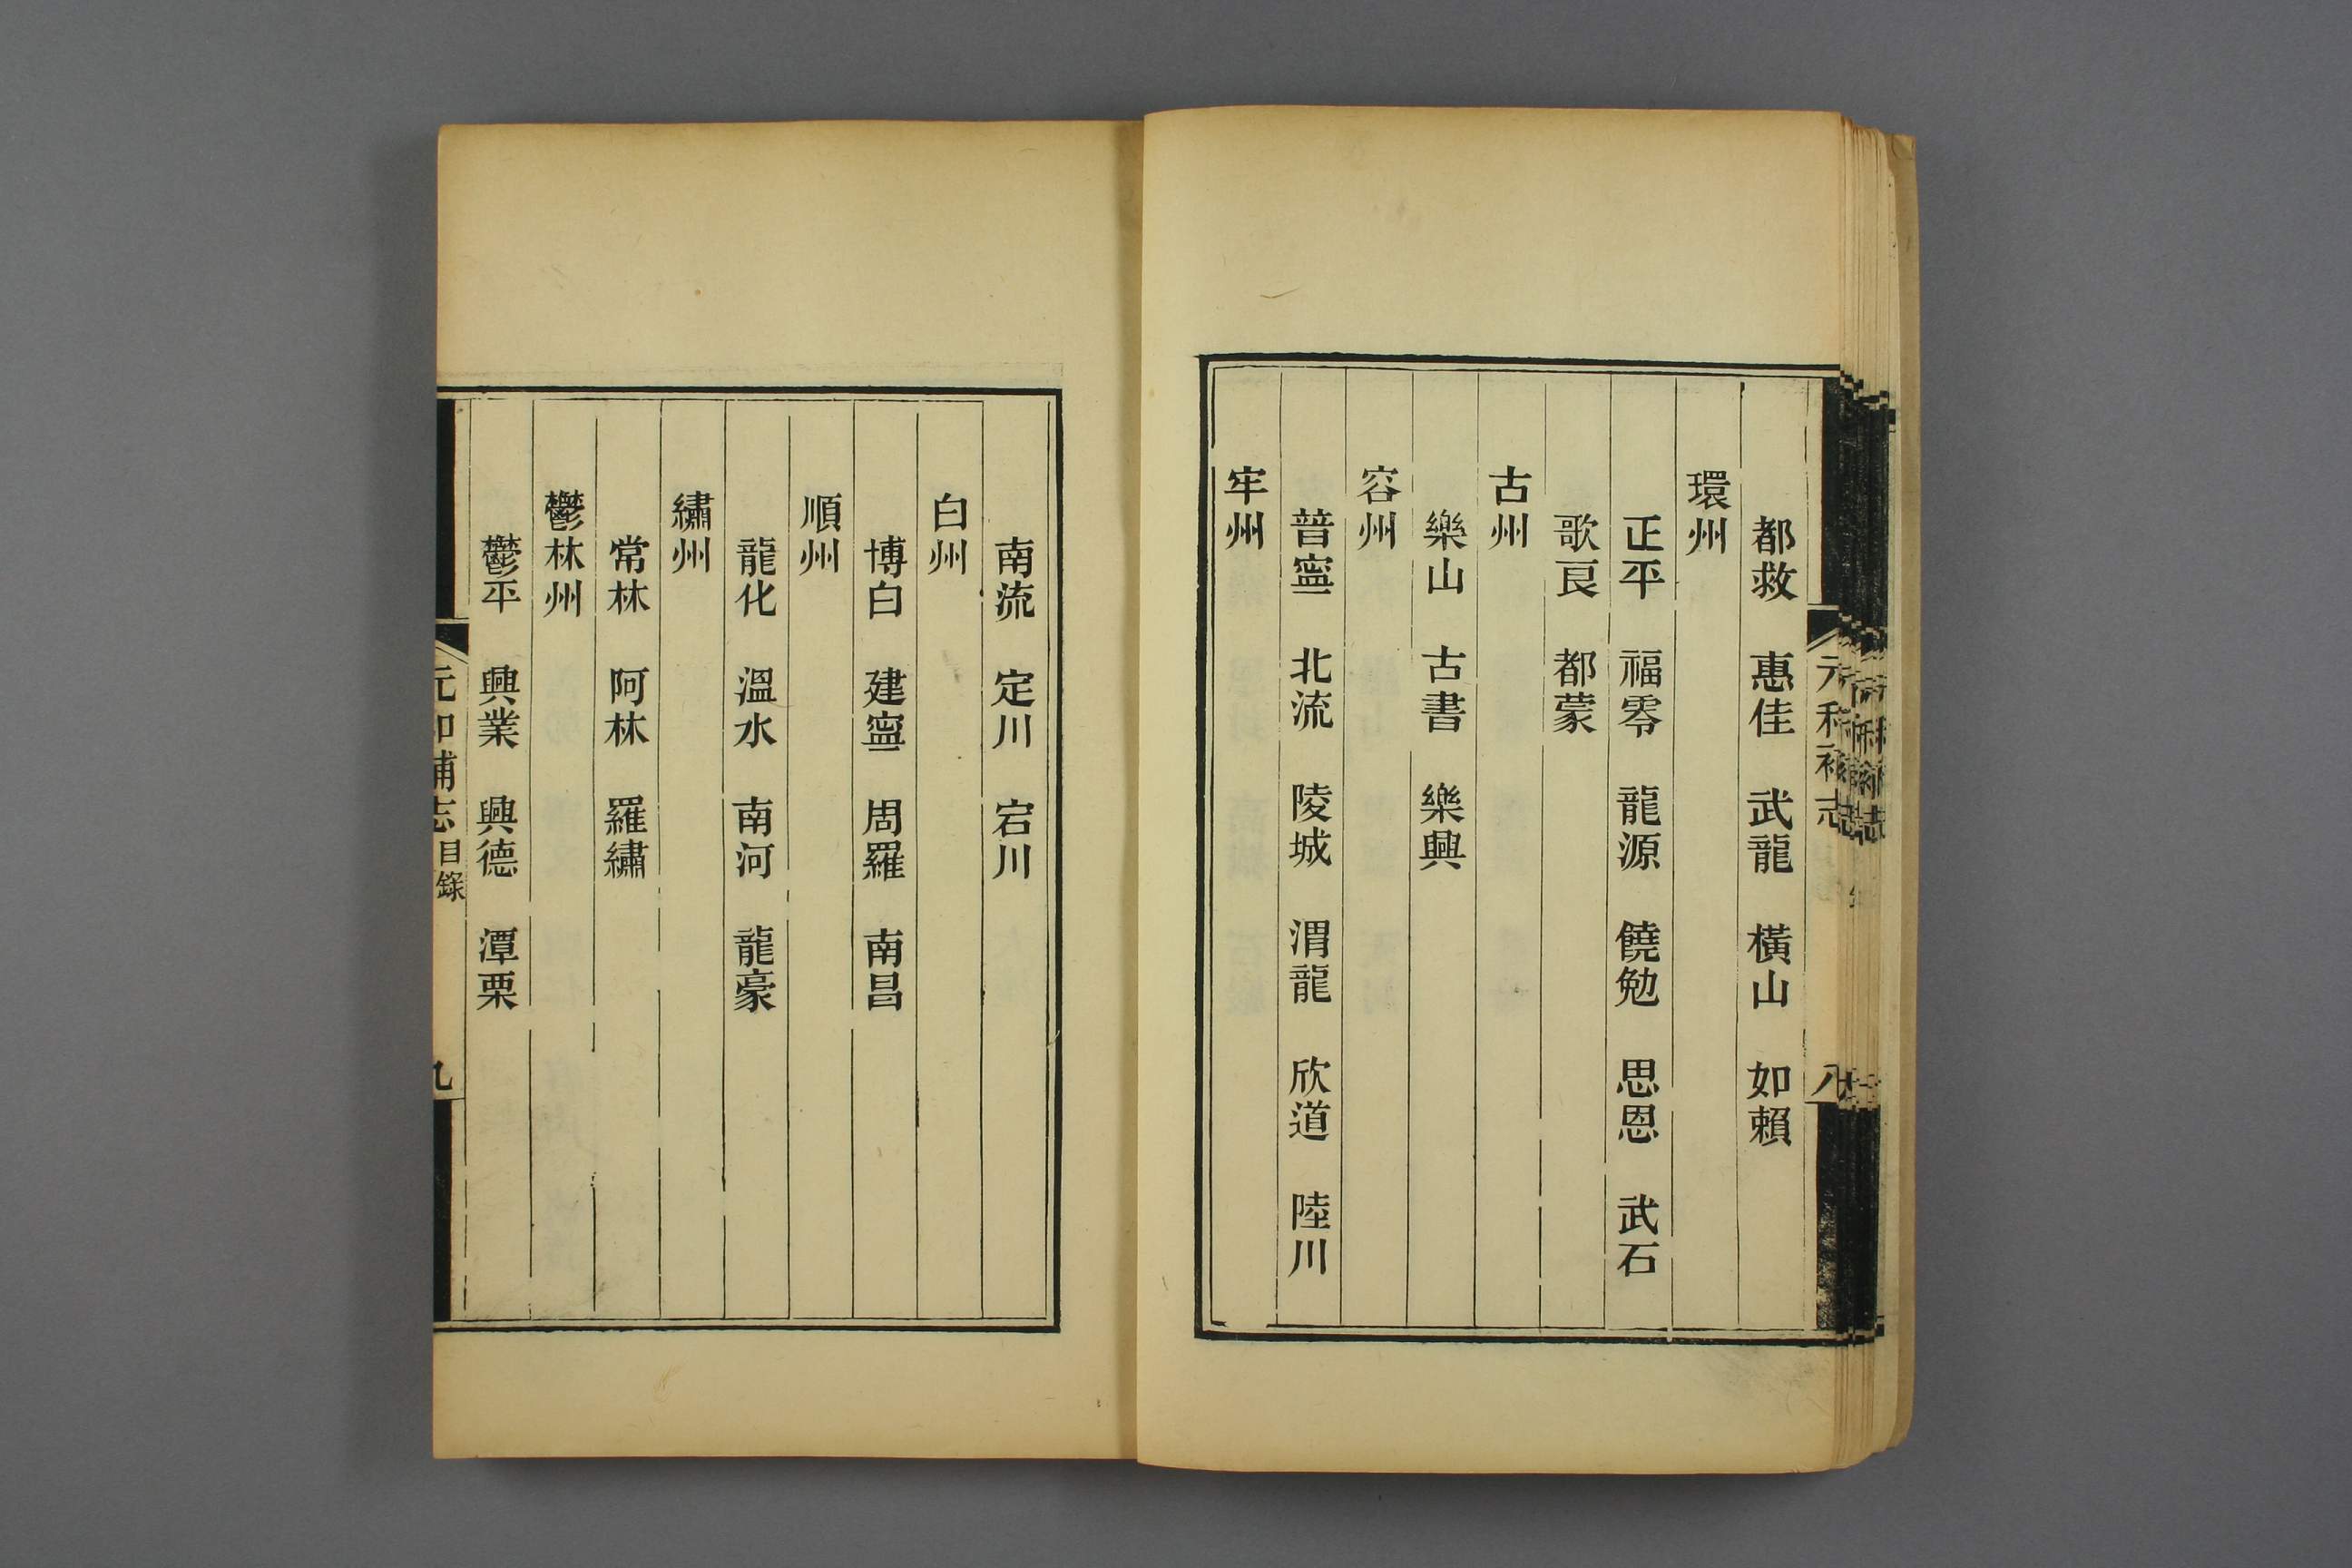 都救　惠佳　武龍　橫山　如賴
環州
正平　福零　龍源　饒勉　思恩　武石
歌良　都蒙
古州
樂山　古書　樂興
容州
普寧　北流　陵城　渭龍　欣道　陸川
牢州
南流　定川　宕川
白州
博白　建寧　周羅　南昌
順州
龍化　溫水　南河　龍豪
繡州
常林　阿林　羅繡
鬱林州
鬱平　興業　興德　潭栗
元和補志　目錄　九